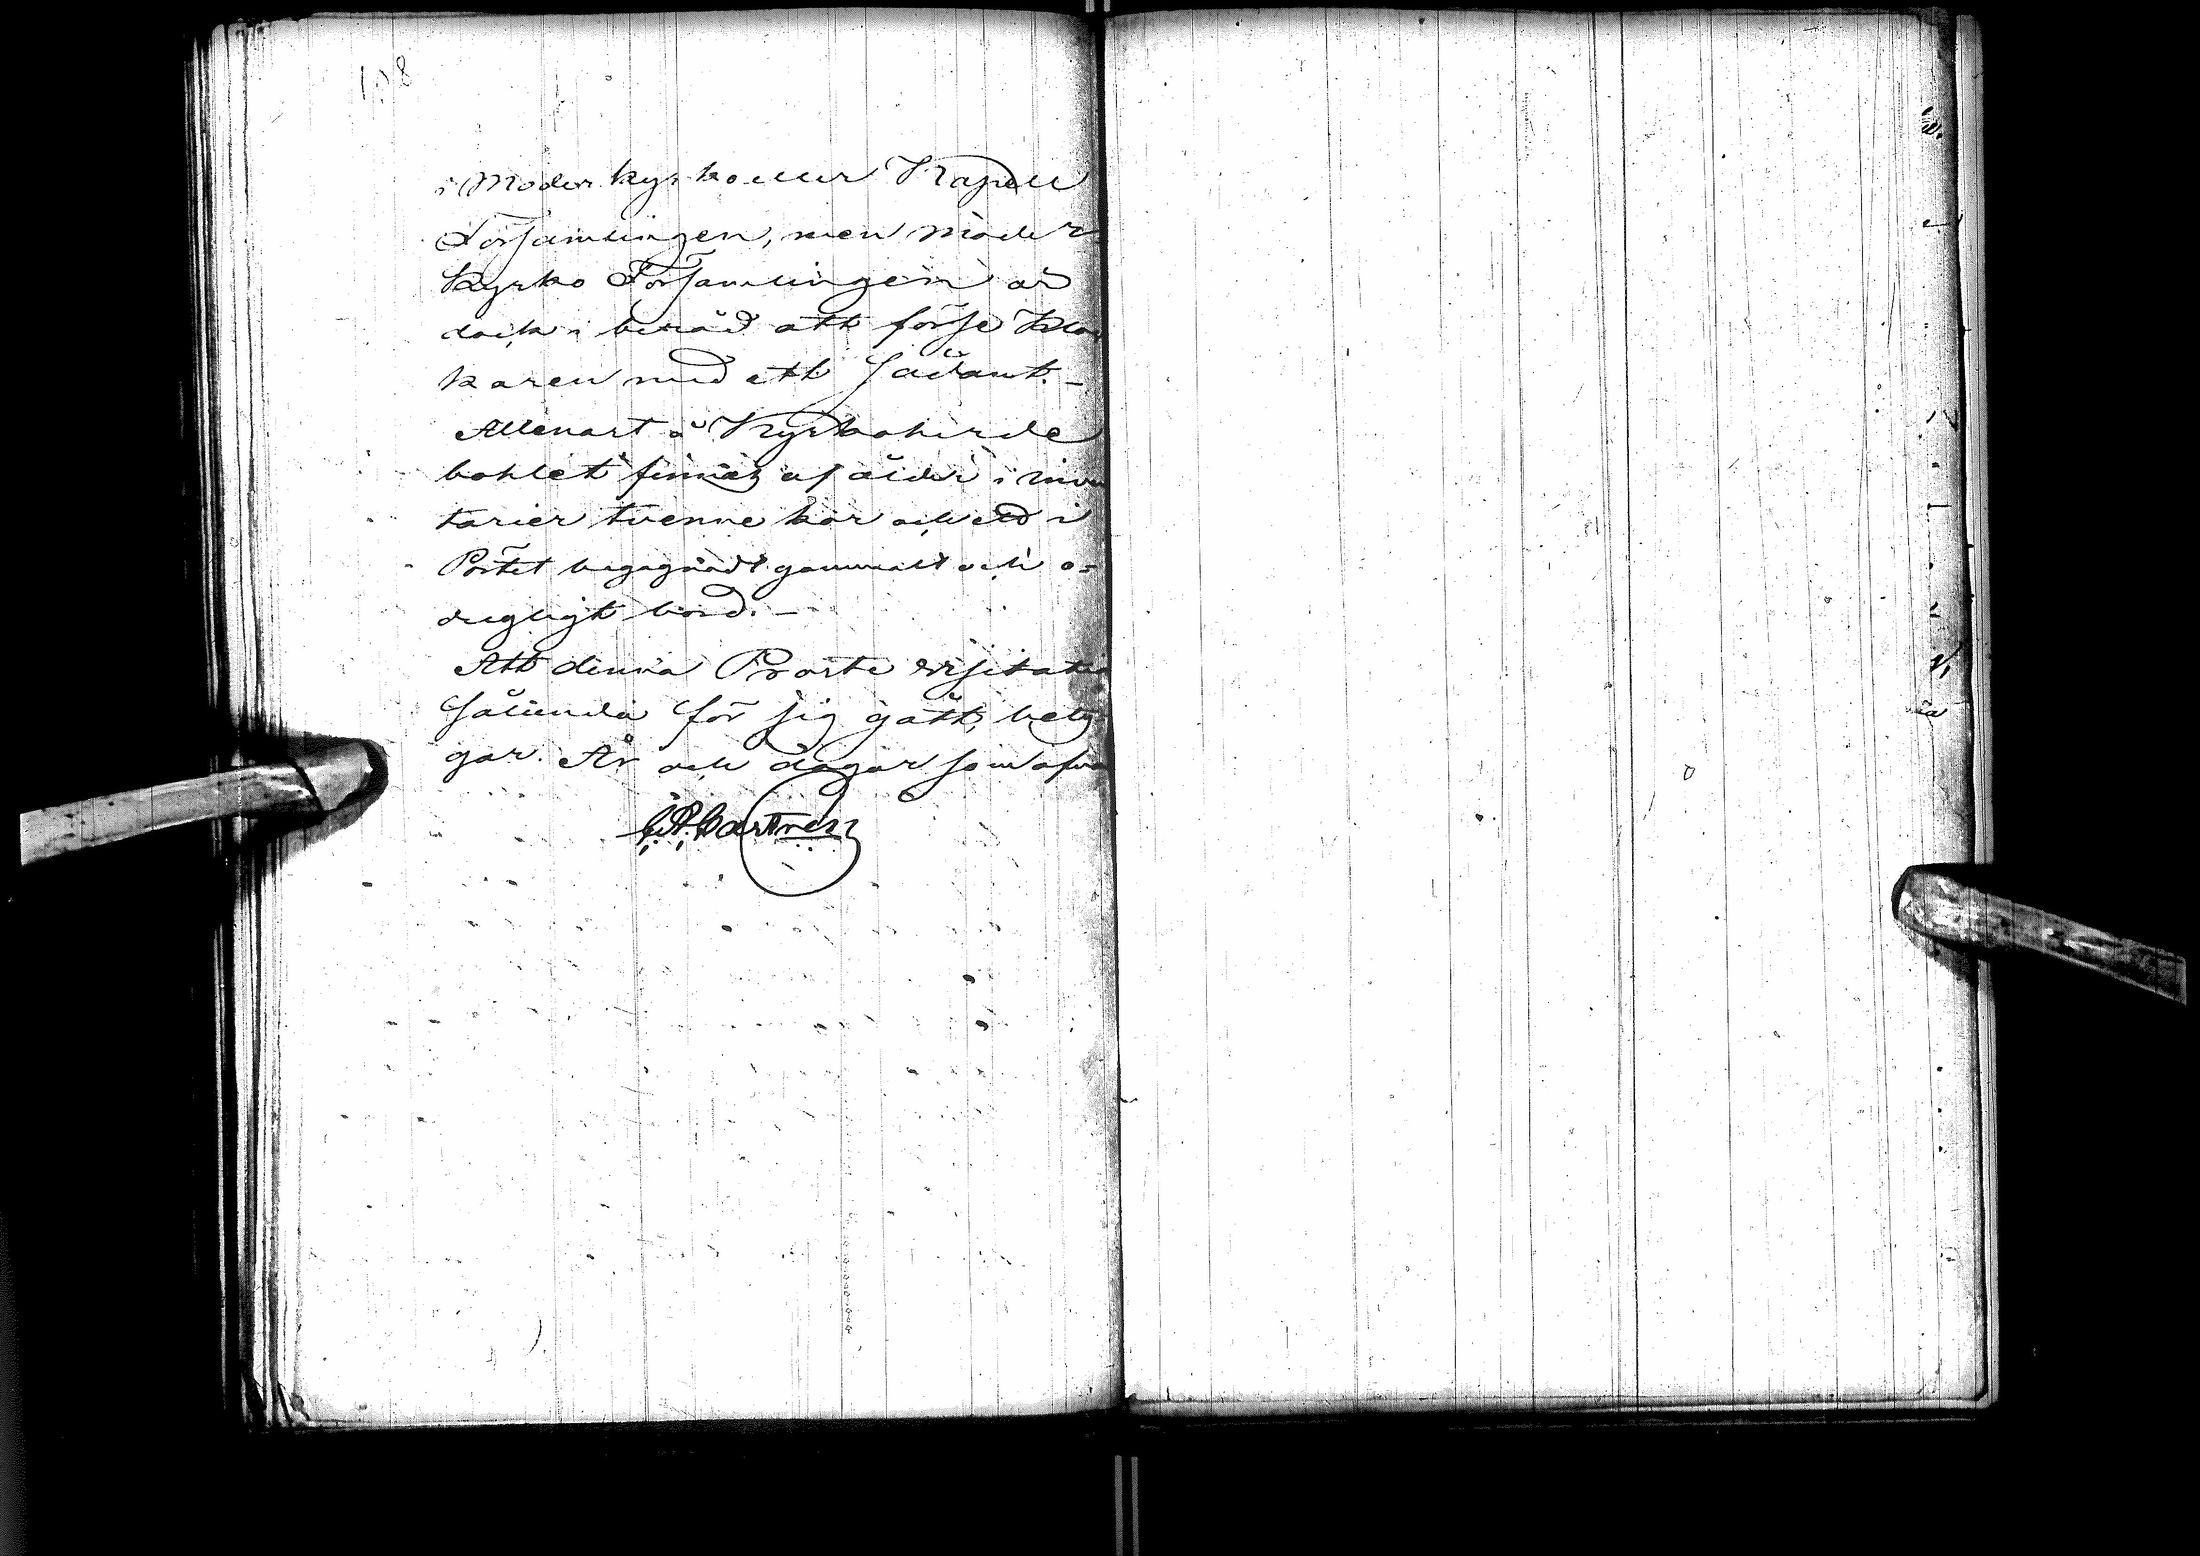 i Moderkyrko eller Kapell
Församlingen, men moder
kyrko Församlingen är
dock i beråd att förse Kloc
karen med ett sådant. -
Allenast å Kyrkoherde
bohlet finnas af ålder i inven
tarier tvenne kor och ett i
Pörtet begagnadt gammalt och o=
dugligt bord. -
Att denna Prosте visitation
sålunda för sig gått, bety
gar. År och dagar som ofvan